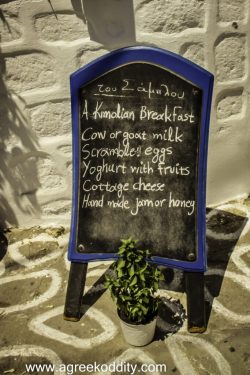 του Σάμπλου
A Kimolian Breakfast
Cow or goat milk
Scrambles eggs
Yoghurt with fruits
Cottage cheese
Hand made jam or honey
www.agreekoddity.com